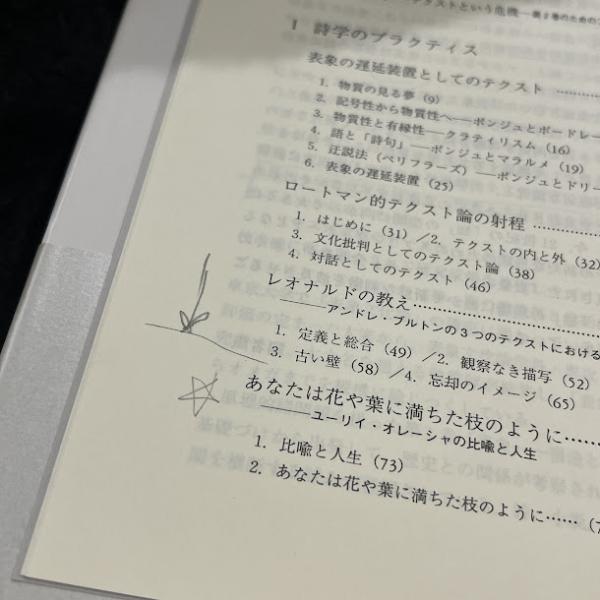 テクストという危機―第2巻のための
I 詩学のプラクティス
表象の遅延装置としてのテクスト……
1. 物質の見る夢 (9)
2. 記号性から物質性へ――ポンジュとボードレー
3. 物質性と有縁性――クラティリスム (16)
4. 語と「詩句」――ポンジュとマラルメ (19)
5. 迂説法（ペリフラーズ）――ポンジュとドリー
6. 表象の遅延装置 (25)
ロートマン的テクスト論の射程……
1. はじめに (31) ／2. テクストの内と外 (32)
3. 文化批判としてのテクスト論 (38)
4. 対話としてのテクスト (46)
レオナルドの教え……
――アンドレ・ブルトンの3つのテクストにおける
1. 定義と総合 (49) ／2. 観察なき描写 (52)
3. 古い壁 (58) ／4. 忘却のイメージ (65)
あなたは花や葉に満ちた枝のように……
――ユーリイ・オレーシャの比喩と人生
1. 比喩と人生 (73)
2. あなたは花や葉に満ちた枝のように…… (7